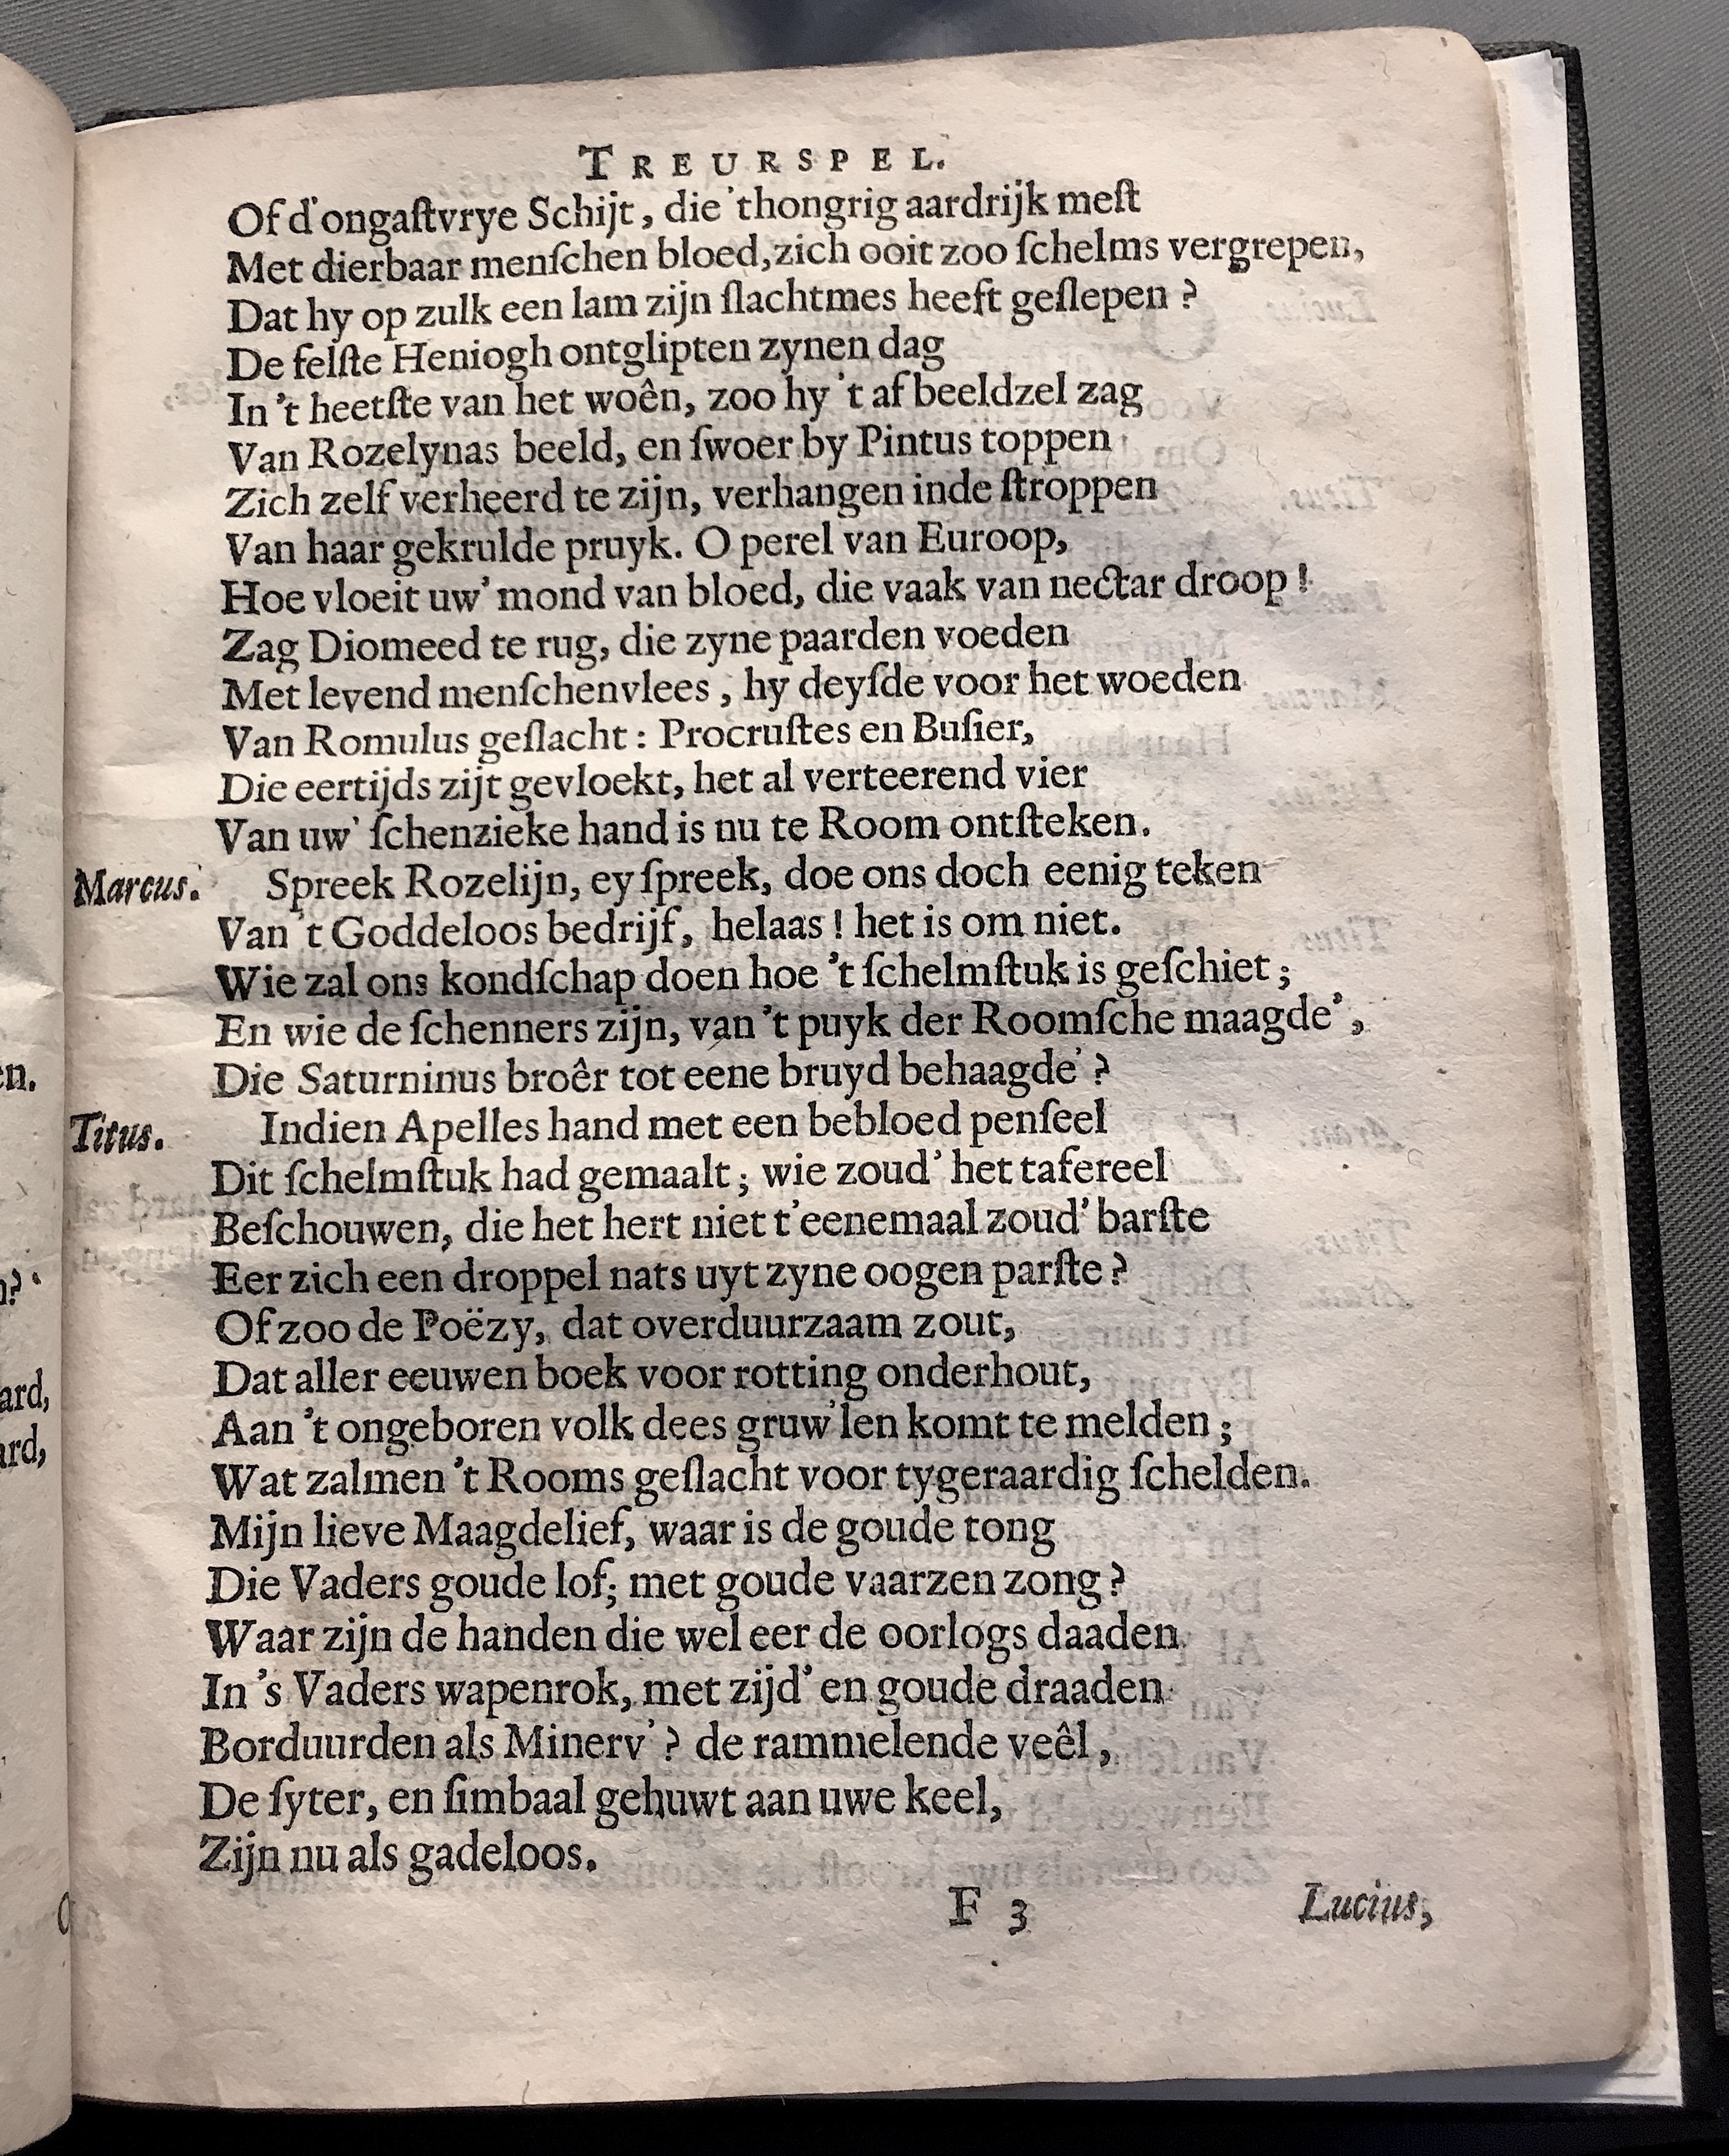 TREURSPEL.
Of d'ongaſtvrye Schijt, die 'thongrig aardrijk meſt
Met dierbaar menſchen bloed, zich ooit zoo ſchelms vergrepen,
Dat hy op zulk een lam zijn ſlachtmes heeft geſlepen ?
De felſte Heniogh ontglipten zynen dag
In 't heetſte van het woên, zoo hy 't af beeldzel zag
Van Rozelynas beeld, en ſwoer by Pintus toppen
Zich zelf verheerd te zijn, verhangen inde ſtroppen
Van haar gekrulde pruyk. O perel van Euroop,
Hoe vloeit uw' mond van bloed, die vaak van nectar droop !
Zag Diomeed te rug, die zyne paarden voeden
Met levend menſchenvlees, hy deyſde voor het woeden
Van Romulus geſlacht : Procruſtes en Buſier,
Die eertijds zijt gevloekt, het al verteerend vier
Van uw' ſchenzieke hand is nu te Room ontſteken.
Marcus. Spreek Rozelijn, ey ſpreek, doe ons doch eenig teken
Van 't Goddeloos bedrijf, helaas ! het is om niet.
Wie zal ons kondſchap doen hoe 't ſchelmſtuk is geſchiet ;
En wie de ſchenners zijn, van 't puyk der Roomſche maagde',
Die Saturninus broêr tot eene bruyd behaagde' ?
Titus. Indien Apelles hand met een bebloed penſeel
Dit ſchelmſtuk had gemaalt ; wie zoud' het tafereel
Beſchouwen, die het hert niet t'eenemaal zoud' barſte
Eer zich een droppel nats uyt zyne oogen parſte ?
Of zoo de Poëzy, dat overduurzaam zout,
Dat aller eeuwen boek voor rotting onderhout,
Aan 't ongeboren volk dees gruw'len komt te melden ;
Wat zalmen 't Rooms geſlacht voor tygeraardig ſchelden.
Mijn lieve Maagdelief, waar is de goude tong
Die Vaders goude lof; met goude vaarzen zong ?
Waar zijn de handen die wel eer de oorlogs daaden
In 's Vaders wapenrok, met zijd' en goude draaden
Borduurden als Minerv' ? de rammelende veêl,
De ſyter, en ſimbaal gehuwt aan uwe keel,
Zijn nu als gadeloos.
F 3 Lucius,